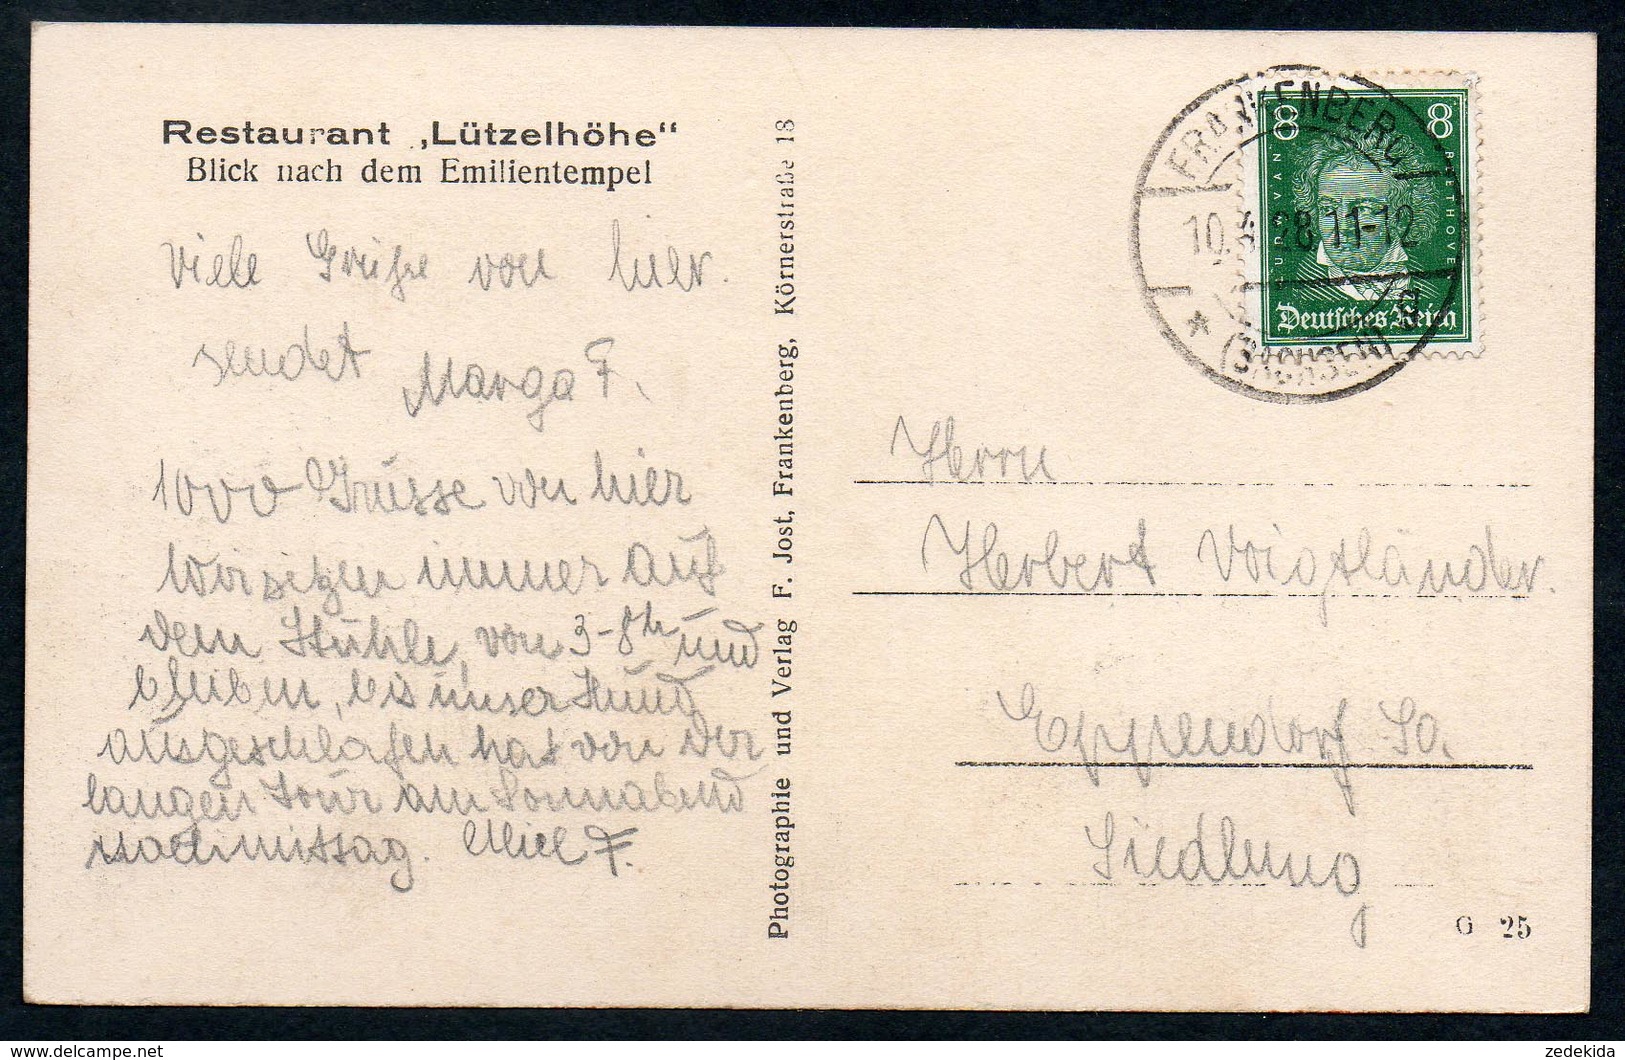 Restaurant „Lützelhöhe“
Blick nach dem Emilientempel
Viele Grüße von hier.
sendet
Marga F.
1000 Grüsse von hier
Wir sitzen immer auf
dem Stuhle, von 3-8h und
bleiben, bis unser Hund
ausgeschlafen hat von der
langen Tour am Sonnabend
nachmittag. F.
Photographie und Verlag F. Jost, Frankenberg, Körnerstraße 18
FRANKENBERG
10. 28.11-12
* (SACHSEN) d
8 8
LUDW VAN BEETHOVEN
Deutsches Reich
Herrn
Herbert Voigtländer.
Eppendorf Sa.
Siedlung
G 25
zedekida